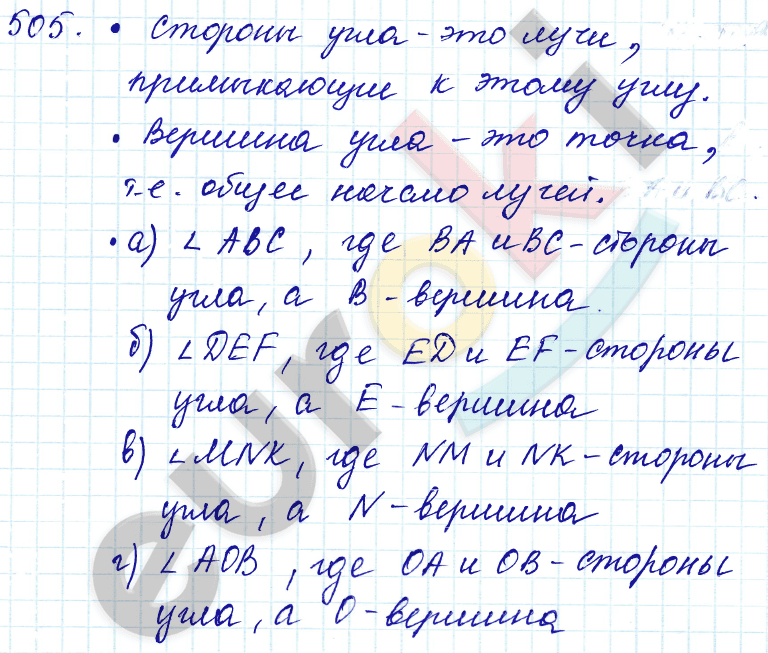 505. • Стороны угла - это лучи,
примыкающие к этому углу.
• Вершина угла - это точка,
т.е. общее начало лучей.
• а) ∠ ABC, где BA и BC - стороны
угла, а B - вершина.
б) ∠DEF, где ED и EF - стороны
угла, а E - вершина
в) ∠MNK, где NM и NK - стороны
угла, а N - вершина
г) ∠ AOB, где OA и OB - стороны
угла, а O - вершина
euroki